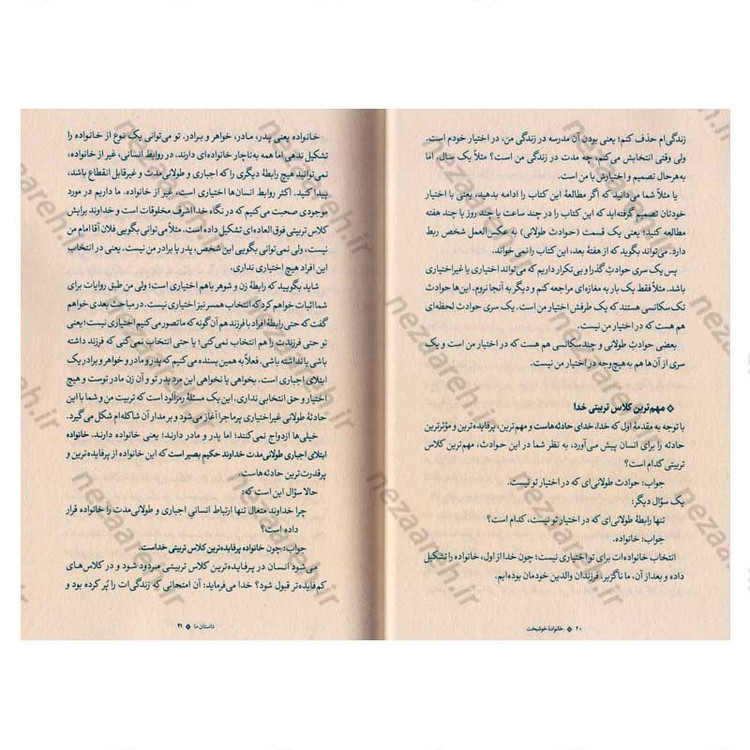 زندگی‌ام حذف کنم؛ یعنی بودن آن مدرسه در زندگی من، در اختیار خودم است.
ولی وقتی انتخابش می‌کنم، چه مدت در زندگی من است؟ مثلاً یک سال. اما
به‌هرحال تصمیم و اختیارش با من است.
یا مثلاً شما می‌دانید که اگر مطالعهٔ این کتاب را ادامه بدهید، یعنی با اختیار
خودتان تصمیم گرفته‌اید که این کتاب را در چند ساعت یا چند روز یا چند هفته
مطالعه کنید؛ یعنی یک قسمت (حوادث طولانی) به عکس‌العمل شخص ربط
دارد. می‌تواند بگوید که از هفتهٔ بعد، این کتاب را نمی‌خواند.
پس یک سری حوادثِ گذرا و بی‌تکرار داریم که می‌تواند اختیاری یا غیراختیاری
باشد. مثلاً فقط یک بار به مغازه‌ای مراجعه کنم و دیگر به آنجا نروم. این‌ها حوادث
تک‌سکانسی هستند که یک طرفش اختیار من است. این‌ها حوادث لحظه‌ای
هم هست که در اختیار من نیست.
بعضی حوادثِ طولانی و چندسکانسی هم هست که در اختیار من است و یک
سری از آن‌ها هم به هیچ‌وجه در اختیار من نیست.
❖ مهم‌ترین کلاس تربیتی خدا
با توجه به مقدمهٔ اول که خدا، خدای حادثه‌هاست و مهم‌ترین، پرفایده‌ترین و مؤثرترین
حادثه را برای انسان پیش می‌آورد، به نظر شما در این حوادث، مهم‌ترین کلاس
تربیتی کدام است؟
جواب: حوادث طولانی‌ای که در اختیار تو نیست.
یک سؤال دیگر:
تنها رابطهٔ طولانی‌ای که در اختیار تو نیست، کدام است؟
جواب: خانواده.
انتخاب خانواده‌ات برای تو اختیاری نیست؛ چون خدا از اول، خانواده را تشکیل
داده و بعد از آن، ما ناگزیر، فرزندان والدین خودمان بوده‌ایم.
۲۰ ❖ خانوادهٔ خوشبخت
خانواده یعنی پدر، مادر، خواهر و برادر. تو می‌توانی یک نوع از خانواده را
تشکیل ندهی اما همه به‌ناچار خانواده‌ای دارند. در روابط انسانی، غیر از خانواده،
نمی‌توانید هیچ رابطهٔ دیگری را که اجباری و طولانی‌مدت و غیرقابل انقطاع باشد،
پیدا کنید. اکثر روابط انسان‌ها اختیاری است، غیر از خانواده. ما داریم در مورد
موجودی صحبت می‌کنیم که در نگاه خدا اشرف مخلوقات است و خداوند برایش
کلاس تربیتی فوق‌العاده‌ای تشکیل داده است. مثلاً می‌توانی بگویی فلان آقا امام من
نیست، ولی نمی‌توانی بگویی این شخص، پدر یا برادر من نیست. یعنی در انتخاب
این افراد هیچ اختیاری نداری.
شاید بگویید که رابطهٔ زن و شوهر با هم اختیاری است؛ ولی من طبق روایات برای
شما اثبات خواهم کرد که انتخاب همسر نیز اختیاری نیست. در مباحث بعدی خواهم
گفت که حتی رابطهٔ افراد با فرزند هم آن گونه که ما تصور می‌کنیم اختیاری نیست؛ یعنی
تو حتی فرزندت را هم انتخاب نمی‌کنی؛ یا حتی انتخاب نمی‌کنی که فرزند داشته
باشی یا نداشته باشی. فعلاً به همین بسنده می‌کنیم که پدر و مادر و خواهر و برادر یک
ابتلای اجباری است. بخواهی یا نخواهی این مرد پدر تو و آن زن مادر توست و هیچ
اختیار و حق انتخابی نداری. این یک مسئلهٔ رمزآلود است که تربیت من و شما با این
حادثهٔ طولانی غیراختیاری پرماجرا آغاز می‌شود و بر مدار آن شاکله‌ام شکل می‌گیرد.
خیلی‌ها ازدواج نمی‌کنند؛ اما پدر و مادر دارند؛ یعنی خانواده دارند. خانواده
ابتلای اجباری طولانی‌مدت خداوند حکیم بصیر است که این خانواده از پرفایده‌ترین و
پرقدرت‌ترین حادثه‌هاست.
حالا سؤال این است که:
چرا خداوند متعال تنها ارتباط انسانیِ اجباری و طولانی‌مدت را خانواده قرار
داده است؟
جواب: چون خانواده پرفایده‌ترین کلاس تربیتی خداست.
می‌شود انسان در پرفایده‌ترین کلاس تربیتی مردود شود و در کلاس‌های
کم‌فایده‌تر قبول شود؟ خدا می‌فرماید: آن امتحانی که زندگی‌ات را پُر کرده بود و
داستان ما ❖ ۲۱
nezaareh.ir